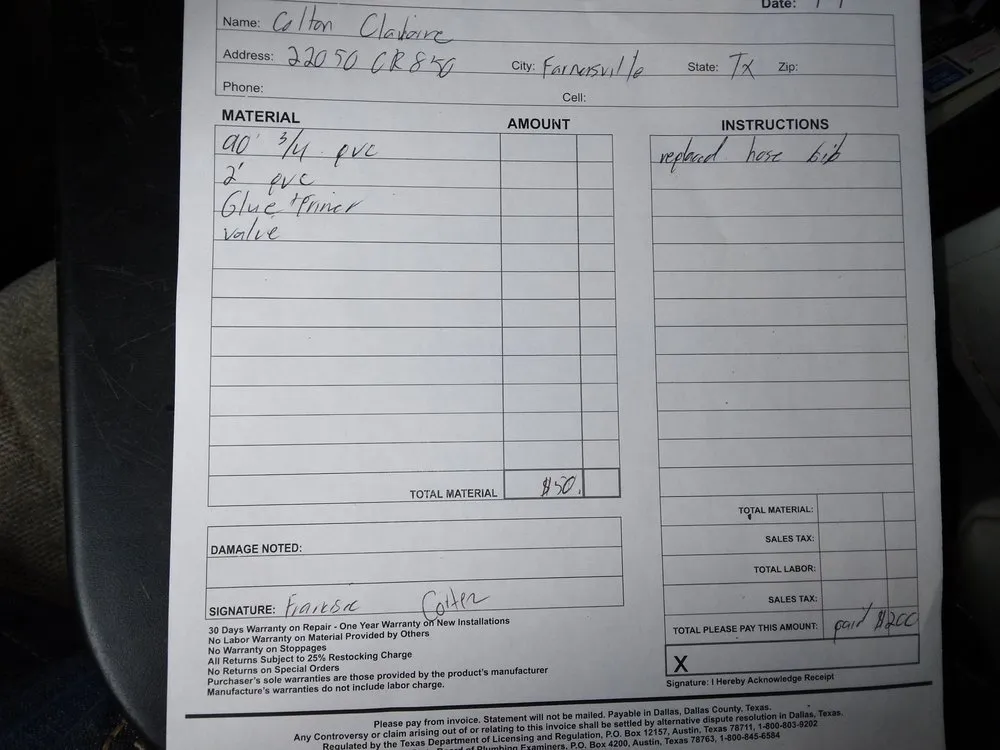 Date: / /
Name: Colton Claiborne
Address: 22050 CR 850 City: Farmersville State: Tx Zip:
Phone: Cell:
MATERIAL AMOUNT INSTRUCTIONS
90' 3/4 pvc replaced hose bib
2' pvc
Glue + Primer
valve
TOTAL MATERIAL $50.
TOTAL MATERIAL:
SALES TAX:
TOTAL LABOR:
SALES TAX:
TOTAL PLEASE PAY THIS AMOUNT: paid $200
DAMAGE NOTED:
SIGNATURE:
X
Signature: I Hereby Acknowledge Receipt
30 Days Warranty on Repair - One Year Warranty on New Installations
No Labor Warranty on Material Provided by Others
No Warranty on Stoppages
All Returns Subject to 25% Restocking Charge
No Returns on Special Orders
Purchaser's sole warranties are those provided by the product's manufacturer
Manufacture's warranties do not include labor charge.
Please pay from invoice. Statement will not be mailed. Payable in Dallas, Dallas County, Texas.
Any Controversy or claim arising out of or relating to this invoice shall be settled by alternative dispute resolution in Dallas, Texas.
Regulated by the Texas Department of Licensing and Regulation, P.O. Box 12157, Austin, Texas 78711, 1-800-803-9202
Board of Plumbing Examiners, P.O. Box 4200, Austin, Texas 78763, 1-800-845-6584